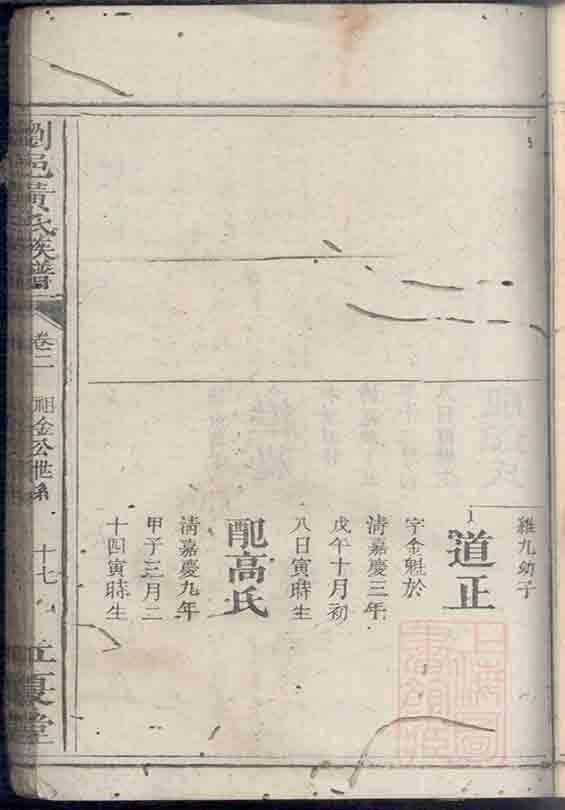 雅九幼子
道正
字金魁於
清嘉慶三年
戊午十月初
八日寅時生
配高氏
清嘉慶九年
甲子三月二
十四寅時生
瀏邑黃氏族譜
卷二
祖金公世系
十七
上海圖書館藏